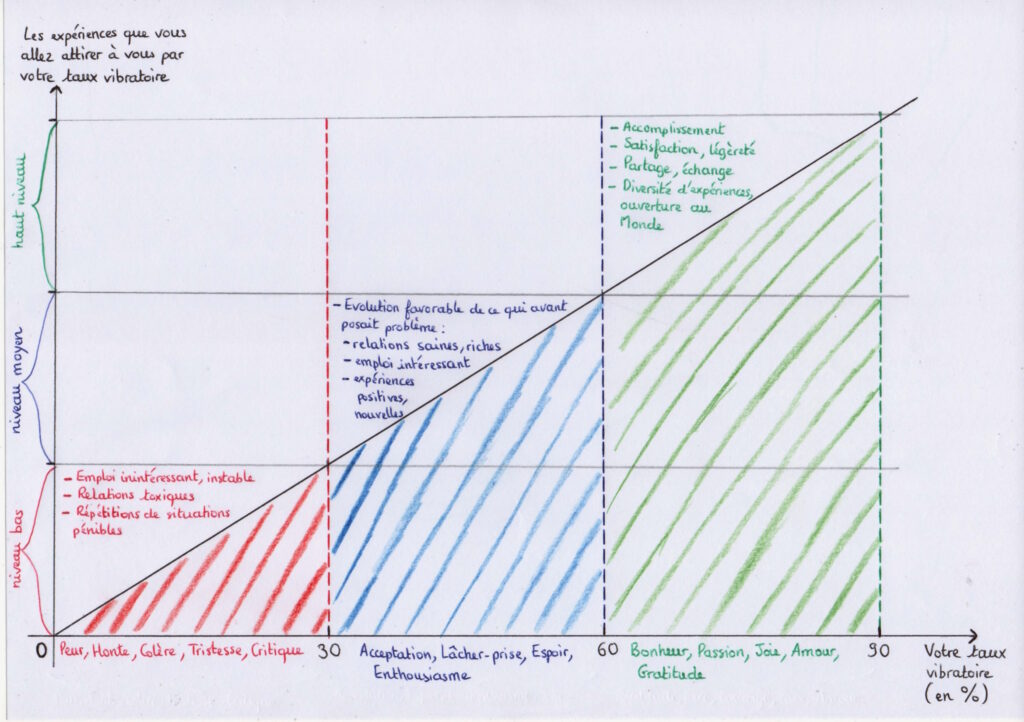 Les expériences que vous
allez attirer à vous par
votre taux vibratoire
haut niveau
- Accomplissement
- Satisfaction, légèreté
- Partage, échange
- Diversité d'expériences,
ouverture au
Monde
niveau moyen
- Evolution favorable de ce qui avant
posait problème :
- relations saines, riches
- emploi intéressant
- expériences
positives,
nouvelles
niveau bas
- Emploi inintéressant, instable
- Relations toxiques
- Répétitions de situations
pénibles
0
30
60
30
Peur, Honte, Colère, Tristesse, Critique
Acceptation, Lâcher-prise, Espoir,
Enthousiasme
Bonheur, Passion, Joie, Amour,
Gratitude
Votre taux
vibratoire
(en %)